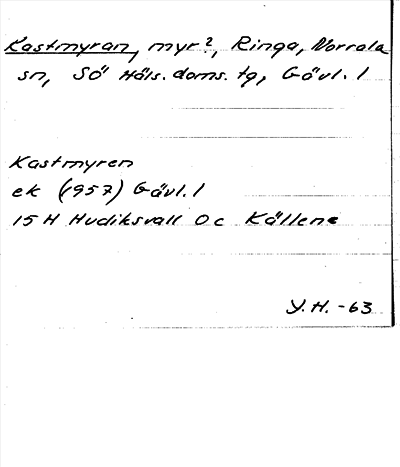 Kastmyran, myr?, Ringa, Norrala
sn, Sö Häls. doms. tg, Gävl. l
Kastmyren
ek (1957) Gävl. l
15 H Hudiksvall 0c Källene
Y. H. -63